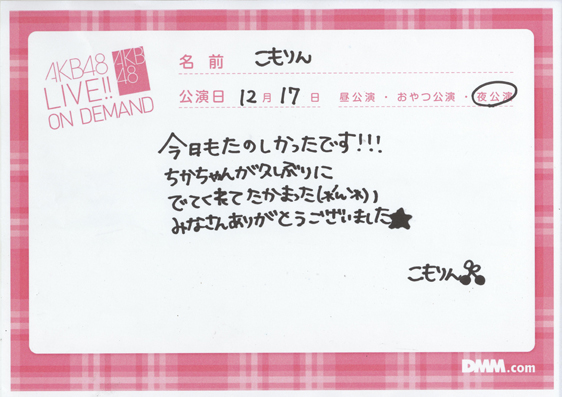 AKB48
LIVE!!
ON DEMAND
AKB
48
名前 こもりん
公演日 12月17日 昼公演・おやつ公演・夜公演
今日もたのしかったです!!!
ちかちゃんが久しぶりに
でてくれて たかまった
みなさんありがとうございました★
こもりん
DMM.com